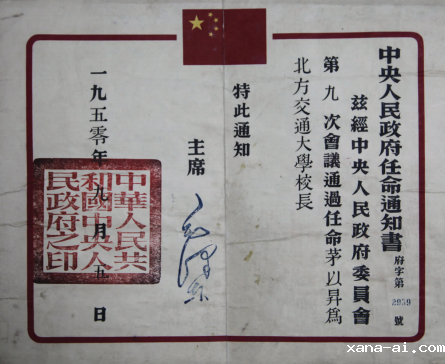 中央人民政府任命通知書
府字第2939號
茲經中央人民政府委員會
第九次會議通過任命茅以昇為
北方交通大學校長
特此通知
主席
毛澤東
一九五零年九月五日
中華人民共
和國中央人
民政府之印
xana-ai.com